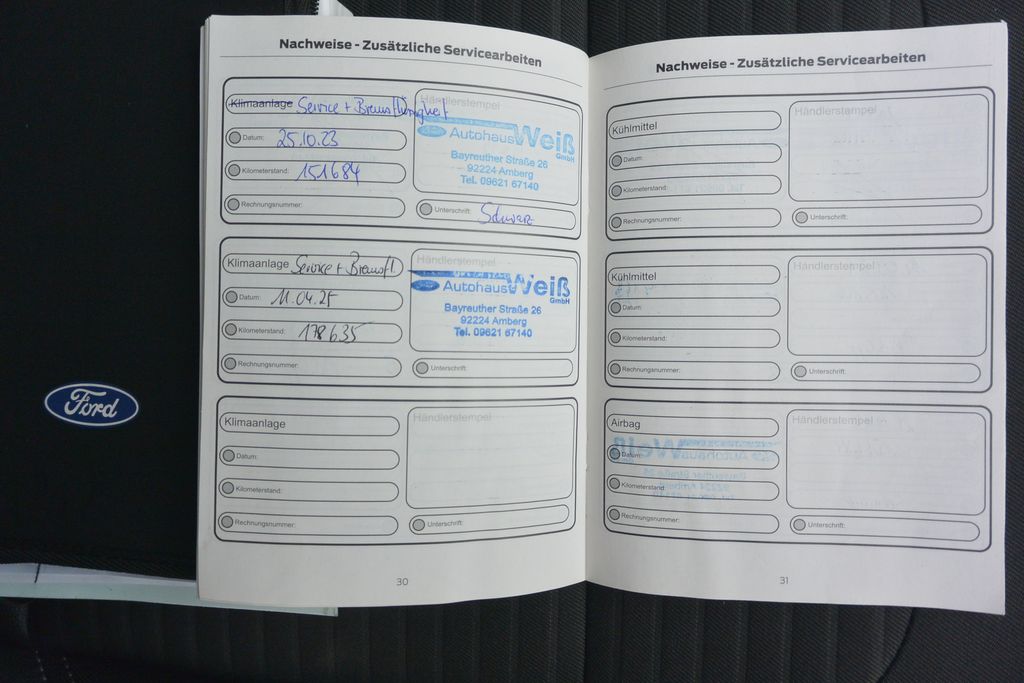 Ford
Nachweise - Zusätzliche Servicearbeiten
Klimaanlage Service + Bremsflüssigkeit
Händlerstempel
Datum: 25.10.23
Kilometerstand: 151684
Rechnungsnummer:
Autohaus Weiß
GmbH
Bayreuther Straße 26
92224 Amberg
Tel. 09621 67140
Unterschrift: Schwarz
Klimaanlage Service + Bremsfl.
Händlerstempel
Datum: 11.04.25
Kilometerstand: 178635
Rechnungsnummer:
Autohaus Weiß
GmbH
Bayreuther Straße 26
92224 Amberg
Tel. 09621 67140
Unterschrift:
Klimaanlage
Händlerstempel
Datum:
Kilometerstand:
Rechnungsnummer:
Unterschrift:
30
Nachweise - Zusätzliche Servicearbeiten
Kühlmittel
Händlerstempel
Datum:
Kilometerstand:
Rechnungsnummer:
Unterschrift:
Kühlmittel
Händlerstempel
Datum:
Kilometerstand:
Rechnungsnummer:
Unterschrift:
Airbag
Händlerstempel
Datum:
Kilometerstand:
Rechnungsnummer:
Unterschrift:
31